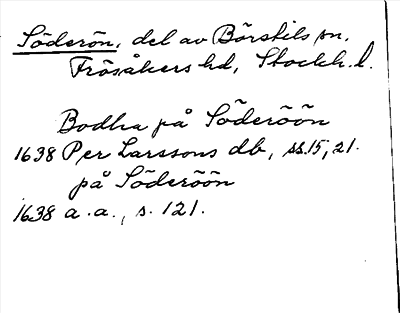 Söderön, del av Börstils sn,
Frösåkers hd, Stockh. l.
Bodha på Söderöön
1638 Per Larssons db, ss. 15, 21.
på Söderöön
1638 a. a., s. 121.